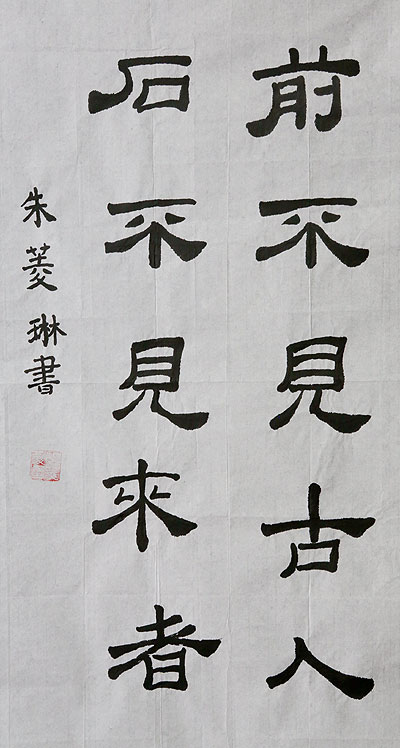 前不見古人
石不見來者
朱菱琳書